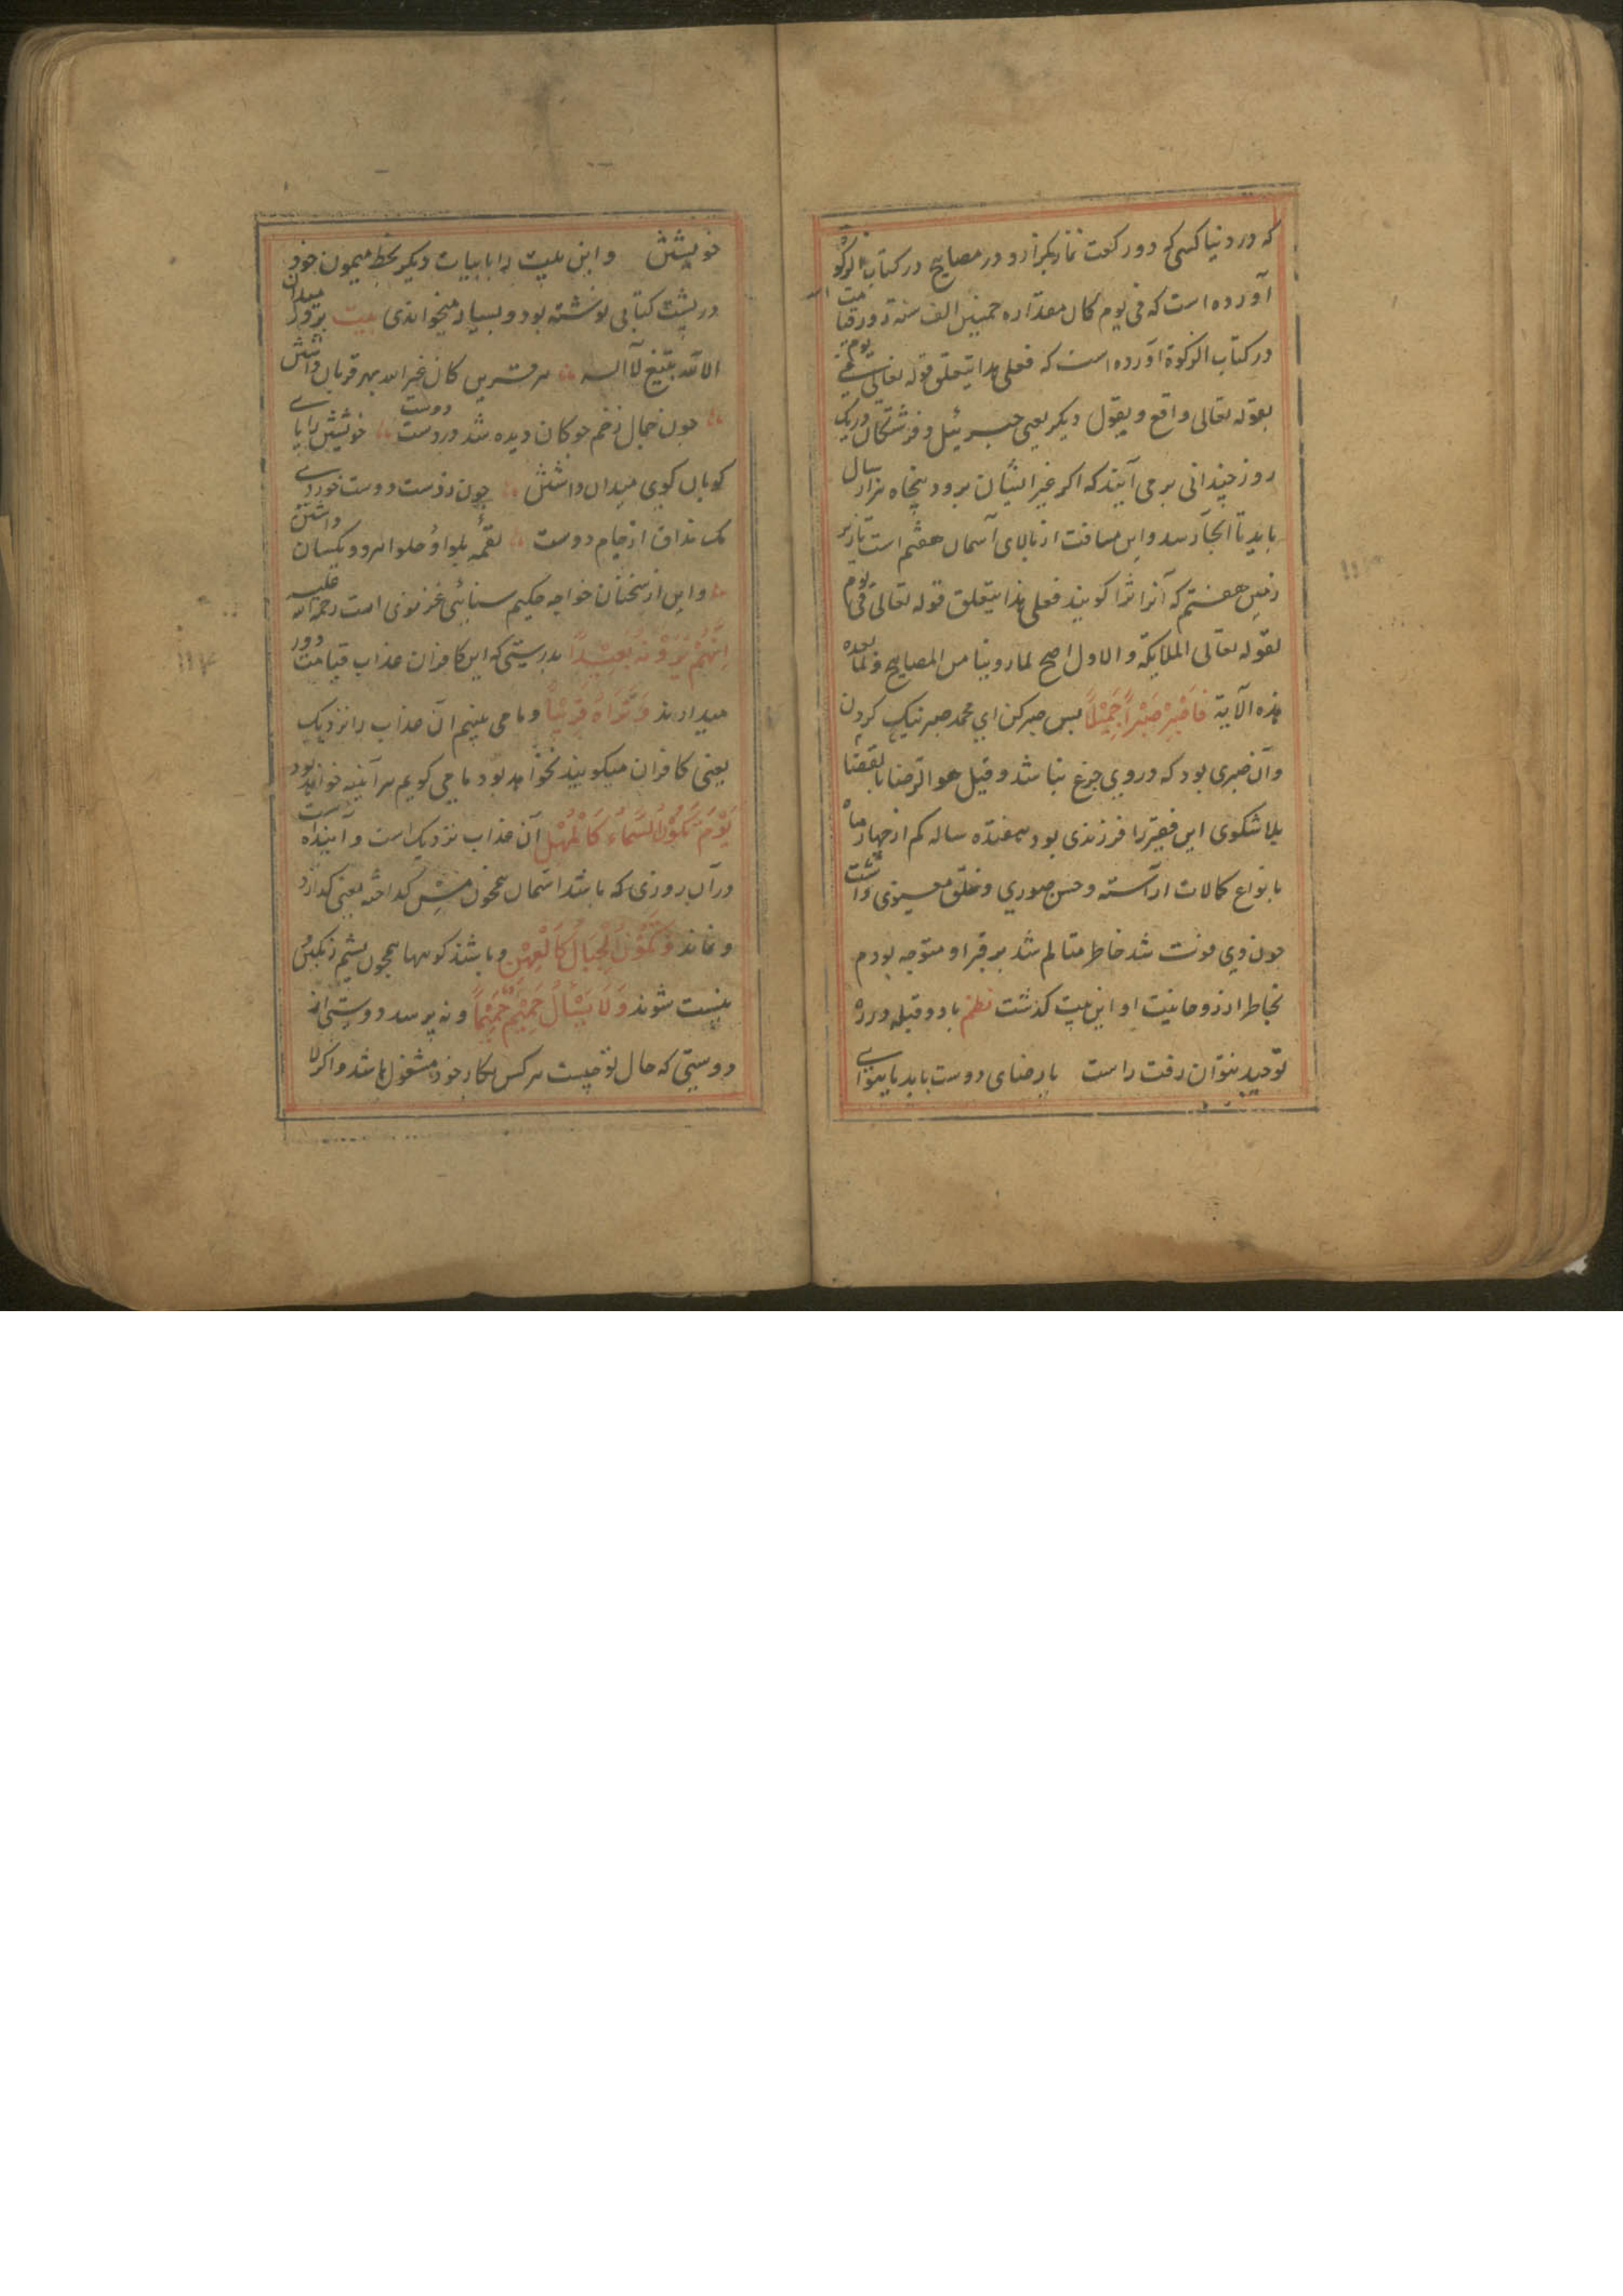 که در دنیا کسی که دو رکعت نماز بگزارد و در مصابیح در کتاب الزکوة
آورده است که فی یوم کان مقداره خمسین الف سنة و در قیامت
در کتاب الزکوة آورده است که فعلی هذا یتعلق قوله تعالی فی یوم
بقوله تعالی واقع و بقول دیکر یعنی جبرئیل و فرشتکان در یک
روز چندانی بر می آیند که اکر غیر ایشان برود پنجاه هزار سال
باید تا آنجا رسد و این مسافت از بالای آسمان هفتم است تا زیر
زمین هفتم که آنرا ثرا کویند فعلی هذا یتعلق قوله تعالی فی یوم
بقوله تعالی الملایکة و الاول اصح لما روینا من المصابیح و لما بعده
هذه الآیة فَاصْبِرْ صَبْراً جَمِیْلاً پس صبر کن ای محمد صبر نیک کردن
وآن صبری بود که دروی جزع نباشد و قیل هو الرضا بالقضا
بلا شکوی این فقیر را فرزندی بود هفده ساله کم از چهار ماه
بانواع کمالات آراسته و حسن صوری و خلق معنوی داشت
چون وی فوت شد خاطر متالم شد بر قبر او متوجه بودم
بخاطر از روحانیت او این بیت کذشت نظم با دو قبله در ره
توحید نتوان رفت راست یا رضای دوست باید یا هوای
خویشتن و این بیت را با بیات دیکر بخط میمون خود
در پشت کتابی نوشته بود و بسیار میخواندی بیت برور میدان
الا الله بتیغ لا اله هر قرین کان غیر الله بهر قربان داشتن
چون خیال زخم چوکان دیده شد در دست دوست خویشتن را پای
کوبان کوی میدان داشتن چون ز دست دوست خوردی
یک مذاق از جام دوست لقمه بلوا و حلوا هر دو یکسان داشتن
و این از سخنان خواجه حکیم سنائی غزنوی است رحمة الله علیه
اِنَّهُمْ یَرَوْنَهُ بَعِیْداً بدرستی که این کافران عذاب قیامت دور
میدارند وَ نَرَاهُ قَرِیْباً و ما می بینیم آن عذاب را نزدیک
یعنی کافران میکویند نخواهد بود ما می کویم هر آینه خواهد بود
یَوْمَ تَکُوْنُ السَّمَاءُ کَالْمُهْلِ آن عذاب نزدیک است و آینده است
در آن روزی که باشد آسمان همچون مس کداخته یعنی کدازد
و نماند وَ تَکُوْنُ الْجِبَالُ کَالْعِهْنِ و باشند کوهها همچون پشم رنکین
نیست شوند وَ لَا یَسْئَلُ حَمِیْمٌ حَمِیْماً و نه پرسد دوستی از
دوستی که حال تو چیست هر کس بکار خود مشغول باشد و اکر